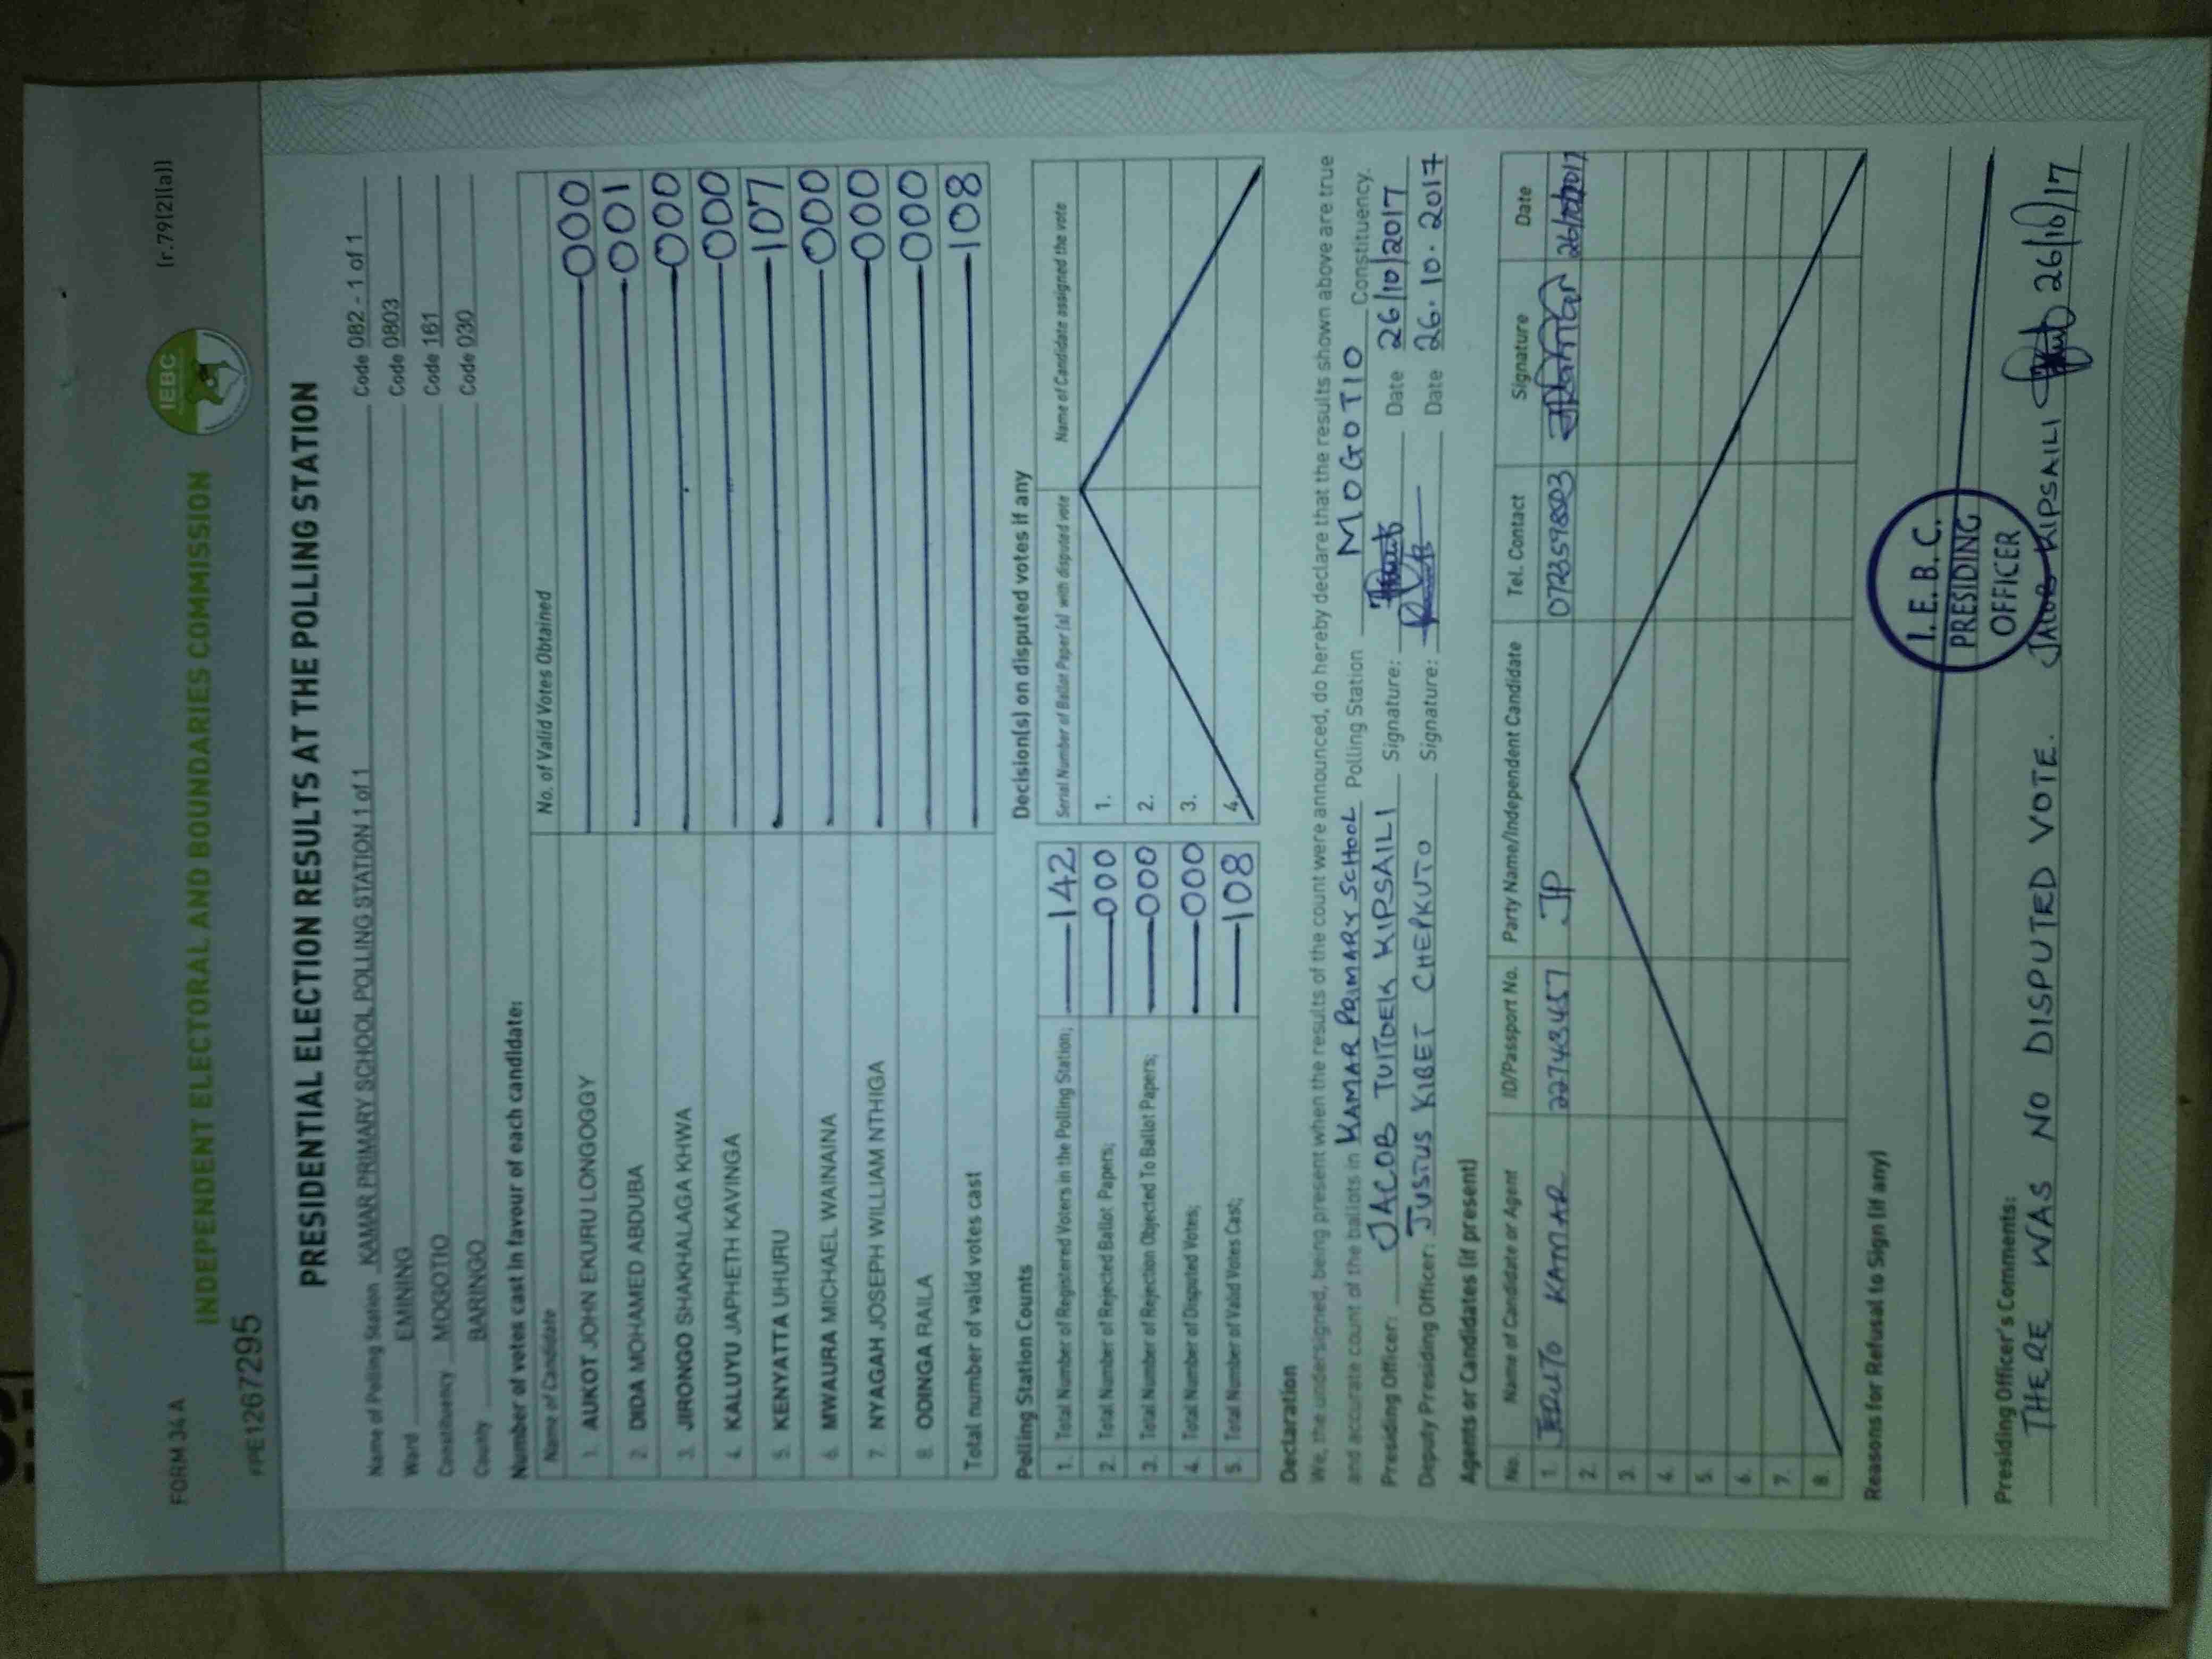 FORM 34A
(r.79(2)(a))
INDEPENDENT ELECTORAL AND BOUNDARIES COMMISSION
IEBC
PE1267295
PRESIDENTIAL ELECTION RESULTS AT THE POLLING STATION
Name of Polling Station KAMAR PRIMARY SCHOOL POLLING STATION 1 of 1 Code 082 - 1 of 1
Ward EMINING Code 0803
Constituency MOGOTIO Code 161
County BARINGO Code 030
Number of votes cast in favour of each candidate:
Name of Candidate No. of Valid Votes Obtained
1. AUKOT JOHN EKURU LONGOGGY 000
2. DIDA MOHAMED ABDUBA 001
3. JIRONGO SHAKHALAGA KHWA 000
4. KALUYU JAPHETH KAVINGA 000
5. KENYATTA UHURU 107
6. MWAURA MICHAEL WAINAINA 000
7. NYAGAH JOSEPH WILLIAM NTHIGA 000
8. ODINGA RAILA 000
Total number of valid votes cast 108
Polling Station Counts
1. Total Number of Registered Voters in the Polling Station; 142
2. Total Number of Rejected Ballot Papers; 000
3. Total Number of Rejection Objected To Ballot Papers; 000
4. Total Number of Disputed Votes; 000
5. Total Number of Valid Votes Cast; 108
Decision(s) on disputed votes if any
Serial Number of Ballot Paper (s) with disputed vote Name of Candidate assigned the vote
1.
2.
3.
4.
Declaration
We, the undersigned, being present when the results of the count were announced, do hereby declare that the results shown above are true
and accurate count of the ballots in KAMAR PRIMARY SCHOOL Polling Station MOGOTIO Constituency.
Presiding Officer: JACOB TUITOEK KIPSAILI Signature: Date 26/10/2017
Deputy Presiding Officer: JUSTUS KIBET CHEPKUTO Signature: Date 26.10.2017
Agents or Candidates (if present)
No. Name of Candidate or Agent ID/Passport No. Party Name/Independent Candidate Tel. Contact Signature Date
1. JERUTO KAMAR 22743457 JP 0723598803 26/10/2017
2.
3.
4.
5.
6.
7.
8.
Reasons for Refusal to Sign (if any)
I.E.B.C.
PRESIDING
OFFICER
Presiding Officer's Comments:
THERE WAS NO DISPUTED VOTE. JACOB KIPSAILI 26/10/17